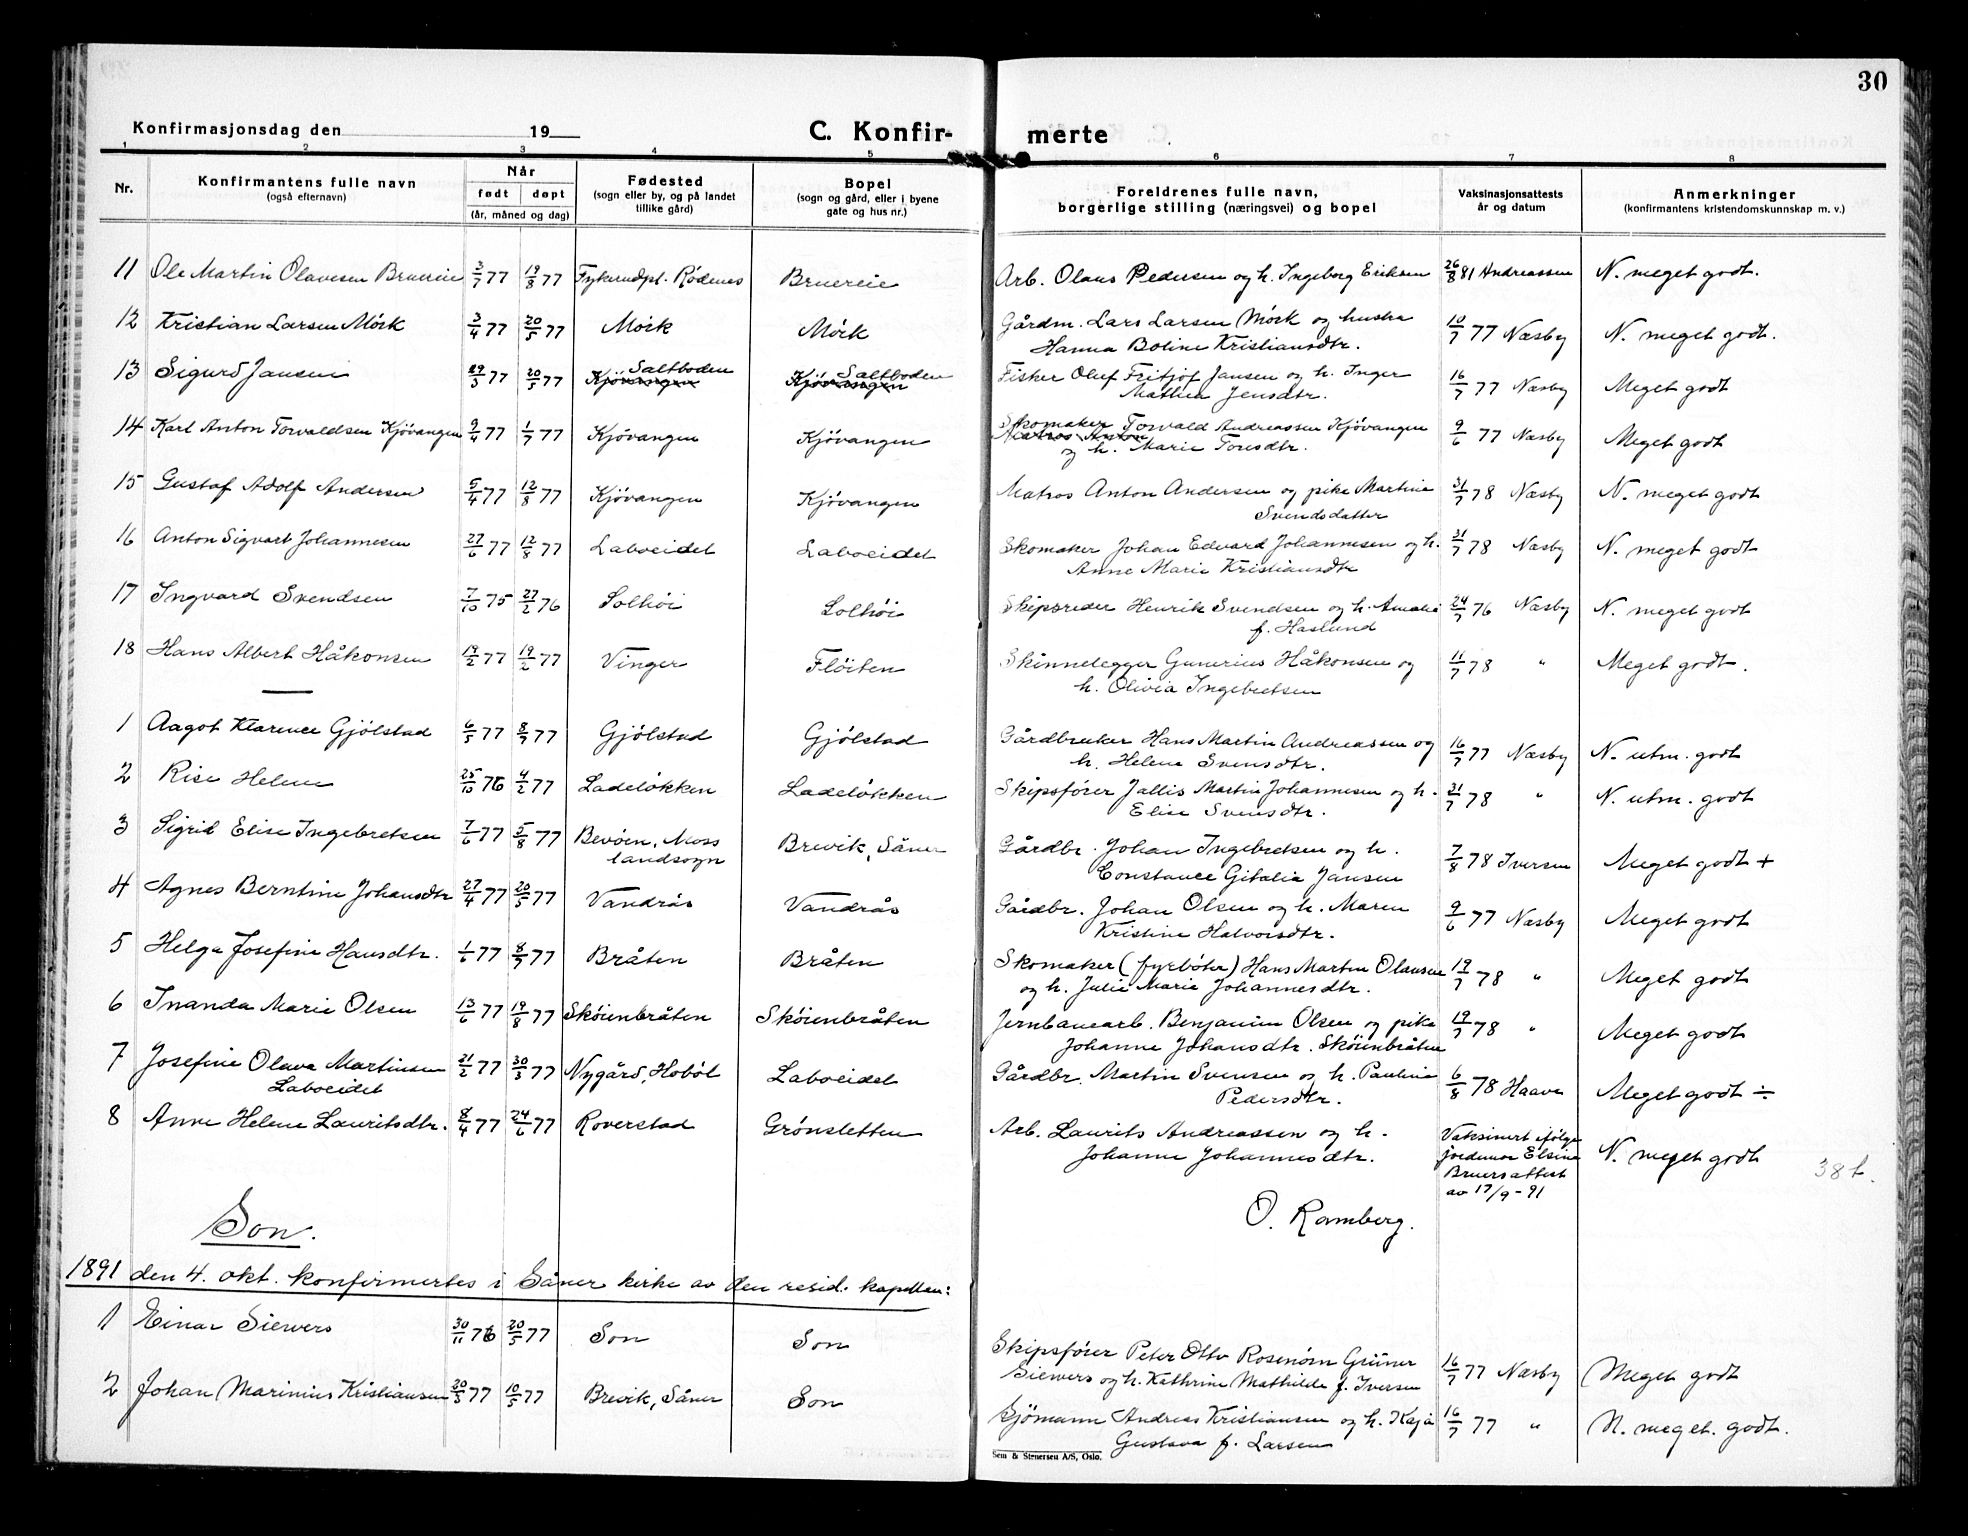 30
Konfirmasjonsdag den 19
C. Konfir- merte
1 2 3 4 5 6 7 8
Nr. Konfirmantens fulle navn (også efternavn) Når født døpt (år, måned og dag) Fødested (sogn eller by, og på landet tillike gård) Bopel (sogn og gård, eller i byene gate og hus nr.) Foreldrenes fulle navn, borgerlige stilling (næringsvei) og bopel Vaksinasjonsattests år og datum Anmerkninger (konfirmantens kristendomskunnskap m. v.)
11 Ole Martin Olavesen Bruereie 3/7 77 19/8 77 Fykerudpl. Rödenes Bruereie Arb. Olaus Pedersen og h. Ingeborg Eriksen 26/8 81 Andreassen N. meget godt.
12 Kristian Larsen Mörk 3/4 77 20/5 77 Mörk Mörk Gårdm. Lars Larsen Mörk og hustru 10/7 77 Næsby N. meget godt.
Hanna Boline Kristiansdtr.
13 Sigurd Jansen 29/3 77 20/5 77 Saltboden Saltboden Fisker Oluf Fritjof Jansen og h. Inger 16/7 77 Næsby Meget godt
Kjövangen Kjövangen Mathea Jensdtr.
14 Karl Anton Torvaldsen Kjövangen 9/4 77 1/7 77 Kjövangen Kjövangen Skomaker Torvald Andreassen Kjövangen 9/6 77 Næsby Meget godt
Matros Anton
og h. Marie Toresdtr.
15 Gustaf Adolf Andersen 5/4 77 12/8 77 Kjövangen Kjövangen Matros Anton Andersen og pike Martine 31/7 78 Næsby N. meget godt
Svendsdatter
16 Anton Sigvart Johannesen 27/6 77 12/8 77 Laboeidet Laboeidet Skomaker Johan Edvard Johannesen og h. 31/7 78 Næsby N. meget godt
Anne Marie Kristiansdtr
17 Ingvard Svendsen 7/10 75 27/2 76 Solhöi Solhöi Skipsreder Henrik Svendsen og h. Amalie 24/7 76 Næsby N. meget godt
f. Haslund
18 Hans Albert Håkonsen 19/2 77 19/2 77 Vinger Flöiten Skinnelegger Gunerius Håkonsen og 11/7 78 " Meget godt.
h. Olivia Ingebretsen
1 Aagot Klarence Gjölstad 6/5 77 8/7 77 Gjölstad Gjölstad Gårdbruker Hans Martin Andreassen og 16/7 77 Næsby N. utm. godt
h. Helene Svensdtr.
2 Rise Helene 25/10 76 4/2 77 Ladelökken Ladelökken Skipsförer Jallis Martin Johannesen og h. 31/7 78 " N. utm. godt
Elise Svensdtr.
3 Sigrid Elise Ingebretsen 7/6 77 5/8 77 Bevöen, Moss Brevik, Såner Gårdbr. Johan Ingebretsen og h. 7/8 78 Iversen Meget godt +
landsogn Constance Gitalia Jansen
4 Agnes Berntine Johansdtr 27/4 77 20/5 77 Vandrås Vandrås Gårdbr. Johan Olsen og h. Maren 9/6 77 Næsby Meget godt
Kristine Halvorsdtr.
5 Helga Josefine Hansdtr. 1/6 77 8/7 77 Bråten Bråten Skomaker (fyrböter) Hans Martin Olausen 19/7 78 " Meget godt
og h. Julie Marie Johannesdtr.
6 Inanda Marie Olsen 13/6 77 19/8 77 Sköienbråten Sköienbråten Jernbanearb. Benjamin Olsen og pike 19/7 78 " Meget godt
Johanne Johansdtr. Sköienbråten
7 Josefine Olava Martinsen 21/2 77 30/3 77 Nygård, Hoböl Laboeidet Gårdbr. Martin Svensen og h. Pauline 6/8 78 Haave Meget godt ÷
Laboeidet Pedersdtr.
8 Anne Helene Lauritsdtr. 8/4 77 24/6 77 Roverstad Grönsletten Arb. Laurits Andreassen og h. Vaksinert ifölge N. meget godt
Johanne Johannesdtr. jordemor Elsine 38 t.
Bruers attest
av 17/9-91
O. Ramberg.
Son.
1891 den 4. okt. konfirmertes i Såner kirke av den resid. kapellan:
1 Einar Siewers 30/11 76 20/5 77 Son Son Skipsförer Peter Otto Rosenörn Grüner 16/7 77 Næsby Meget godt
Siewers og h. Kathrine Mathilde f. Iversen
2 Johan Marinius Kristiansen 20/3 77 10/5 77 Brevik, Såner Son Sjömann Andreas Kristiansen og h. Kaja 16/7 77 " N. meget. godt.
Gustava f. Larsen
Sem & Stenersen A/S, Oslo.